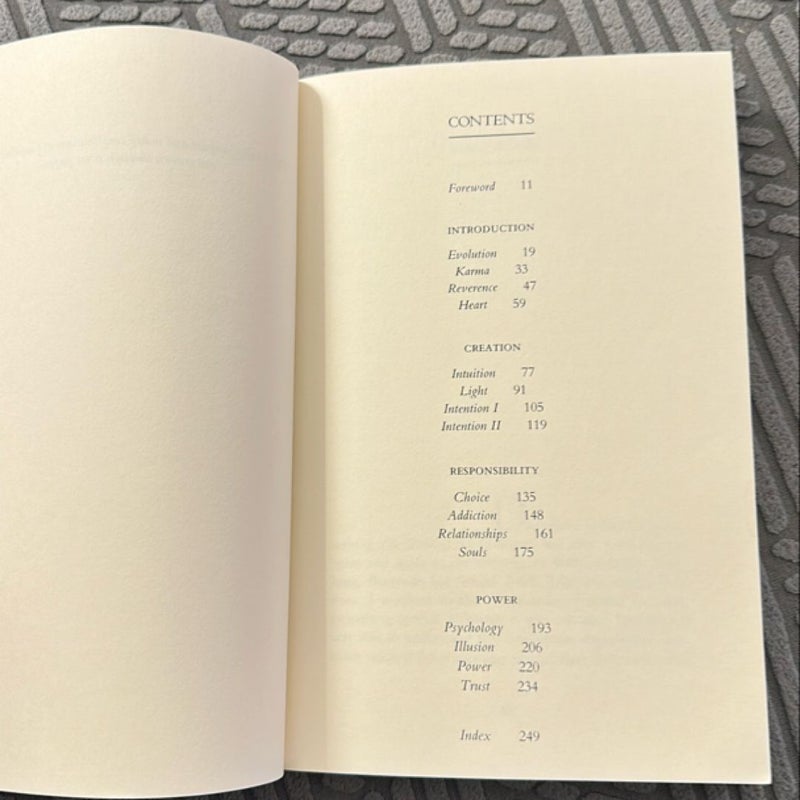 CONTENTS
Foreword 11
INTRODUCTION
Evolution 19
Karma 33
Reverence 47
Heart 59
CREATION
Intuition 77
Light 91
Intention I 105
Intention II 119
RESPONSIBILITY
Choice 135
Addiction 148
Relationships 161
Souls 175
POWER
Psychology 193
Illusion 206
Power 220
Trust 234
Index 249